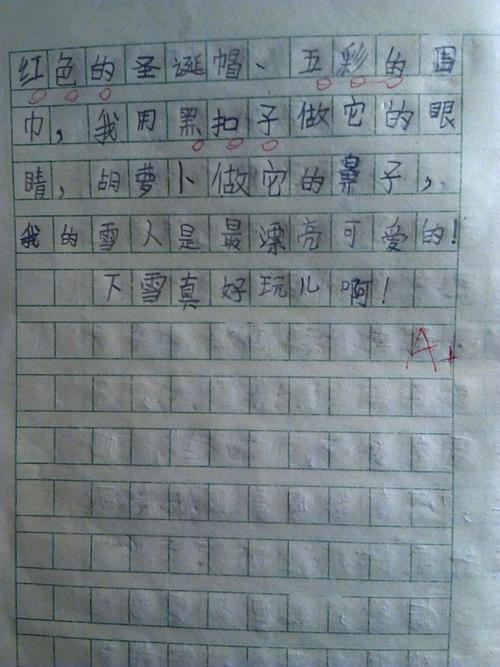 红色的圣诞帽、五彩的围
巾，我用黑扣子做它的眼
睛，胡萝卜做它的鼻子，
我的雪人是最漂亮可爱的！
下雪真好玩儿啊！
A+